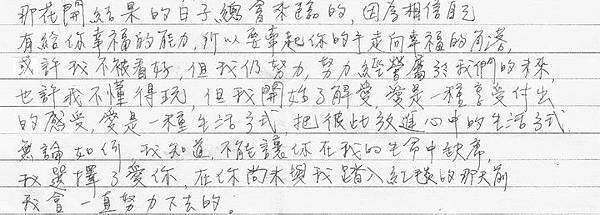 那花開結果的日子總會來臨的，因為相信自己
有給你幸福的能力，所以要牽起你的手走向幸福的角落，
或許我不被看好，但我仍努力，努力經營屬於我們的未來，
也許我不懂得玩，但我開始了解愛，愛是一種享受付出
的感受，愛是一種生活方式，把彼此放進心中的生活方式，
無論如何，我知道，不能讓你在我的生命中缺席，
我選擇了愛你，在你尚未與我踏入紅毯的那天前
我會一直努力下去的。